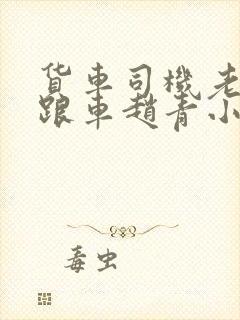 货车司機老
跟車趙青小
毒虫